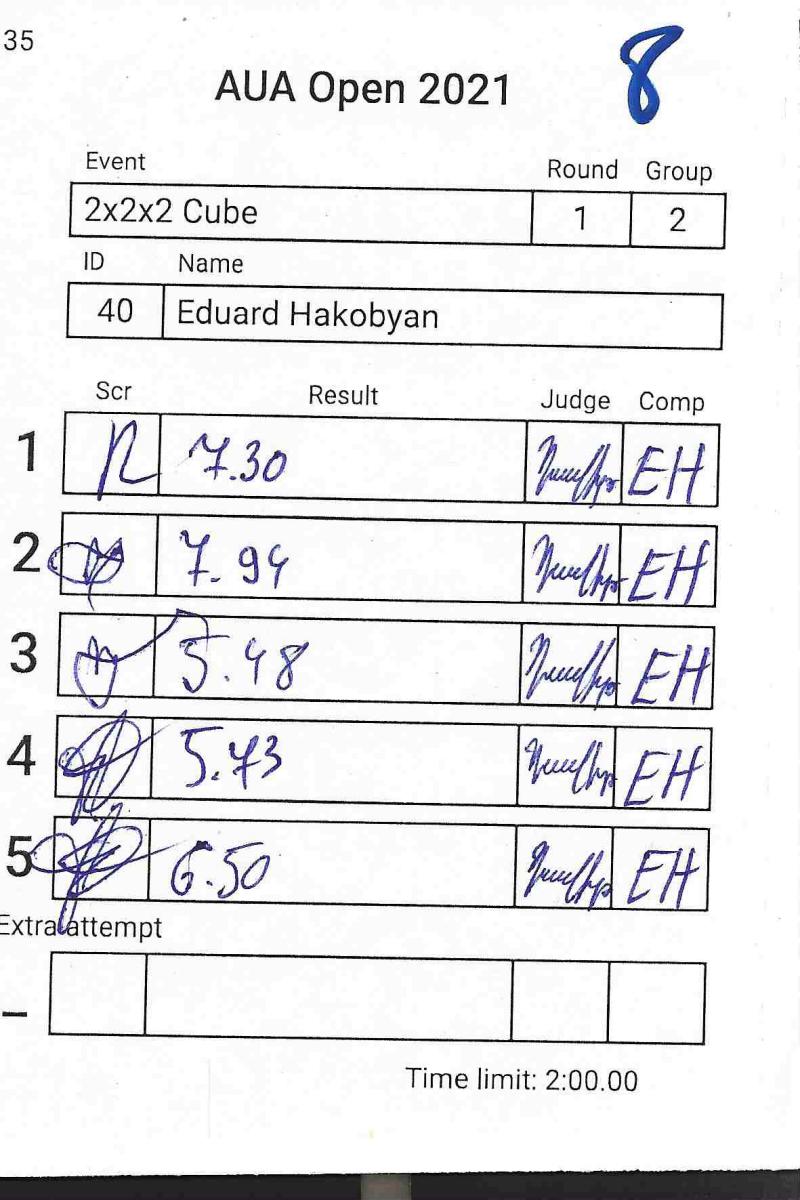 35
AUA Open 2021
8
Event Round Group
2x2x2 Cube 1 2
ID Name
40 Eduard Hakobyan
Scr Result Judge Comp
1 7.30 EH
2 7.94 EH
3 5.48 EH
4 5.73 EH
5 6.50 EH
Extra attempt
–
Time limit: 2:00.00